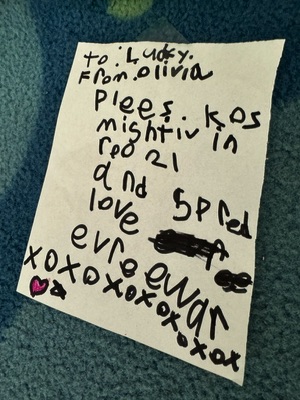 to: Lucky.
From. olivia
plees. kos
mightiv in
reo 21
and spred
love
evre ewar
xoxoxoxoxoxox